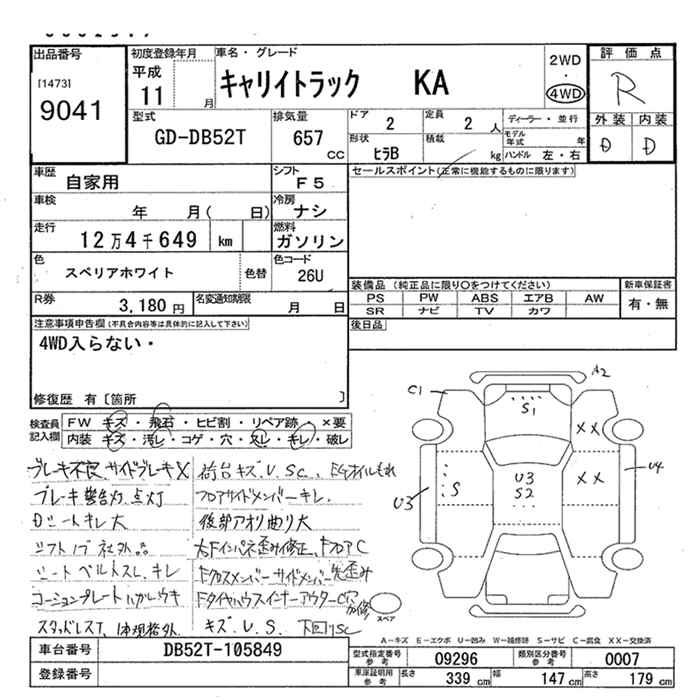 出品番号
[1473]
9041
初度登録年月
平成
11 月
車名・グレード
キャリイトラック KA
2WD
・
4WD
評価点
R
外装 内装
D D
型式
GD-DB52T
排気量
657
CC
ドア
2
定員
2 人
形状
ヒラB
積載
kg
ディーラー・並行
モデル
年式 年
ハンドル 左・右
車歴
自家用
シフト
F5
車検
年 月( 日)
冷房
ナシ
走行
12万4千649 km
燃料
ガソリン
色
スペリアホワイト
色替
色コード
26U
R券
3,180 円
名変通知期限
月 日
セールスポイント(正常に機能するものに限ります)
装備品 (純正品に限り○をつけてください)
新車保証書
PS PW ABS エアB AW
SR ナビ TV カワ
有・無
後日品
注意事項申告欄(不具合内容等は具体的に記入して下さい)
4WD入らない・
修復歴 有〔箇所 〕
検査員
記入欄
FW キズ・飛石・ヒビ割・リペア跡・×要
内装 キズ・汚レ・コゲ・穴・スレ・キレ・破レ
ブレーキ不良、サイドブレーキX
ブレーキ警告灯点灯
Dシートキレ大
シフトノブ社外品
シートベルトスレ、キレ
コーションプレートハガレウキ
スタッドレスT、
荷台キズ、U、SC、
フロアサイドメンバーキレ
後部アオリ曲り大
キズ、U、S、 下回りSC
A2
C1
S1
XX
XX
S
U3
U3
S2
U4
スペア
A－キズ E－エクボ U－凹み W－補修跡 S－サビ C－腐食 XX－交換済
車台番号
DB52T-105849
登録番号
型式指定番号
参考
09296
類別区分番号
参考
0007
車庫証明用
参考
長さ
339 cm
幅
147 cm
高さ
179 cm